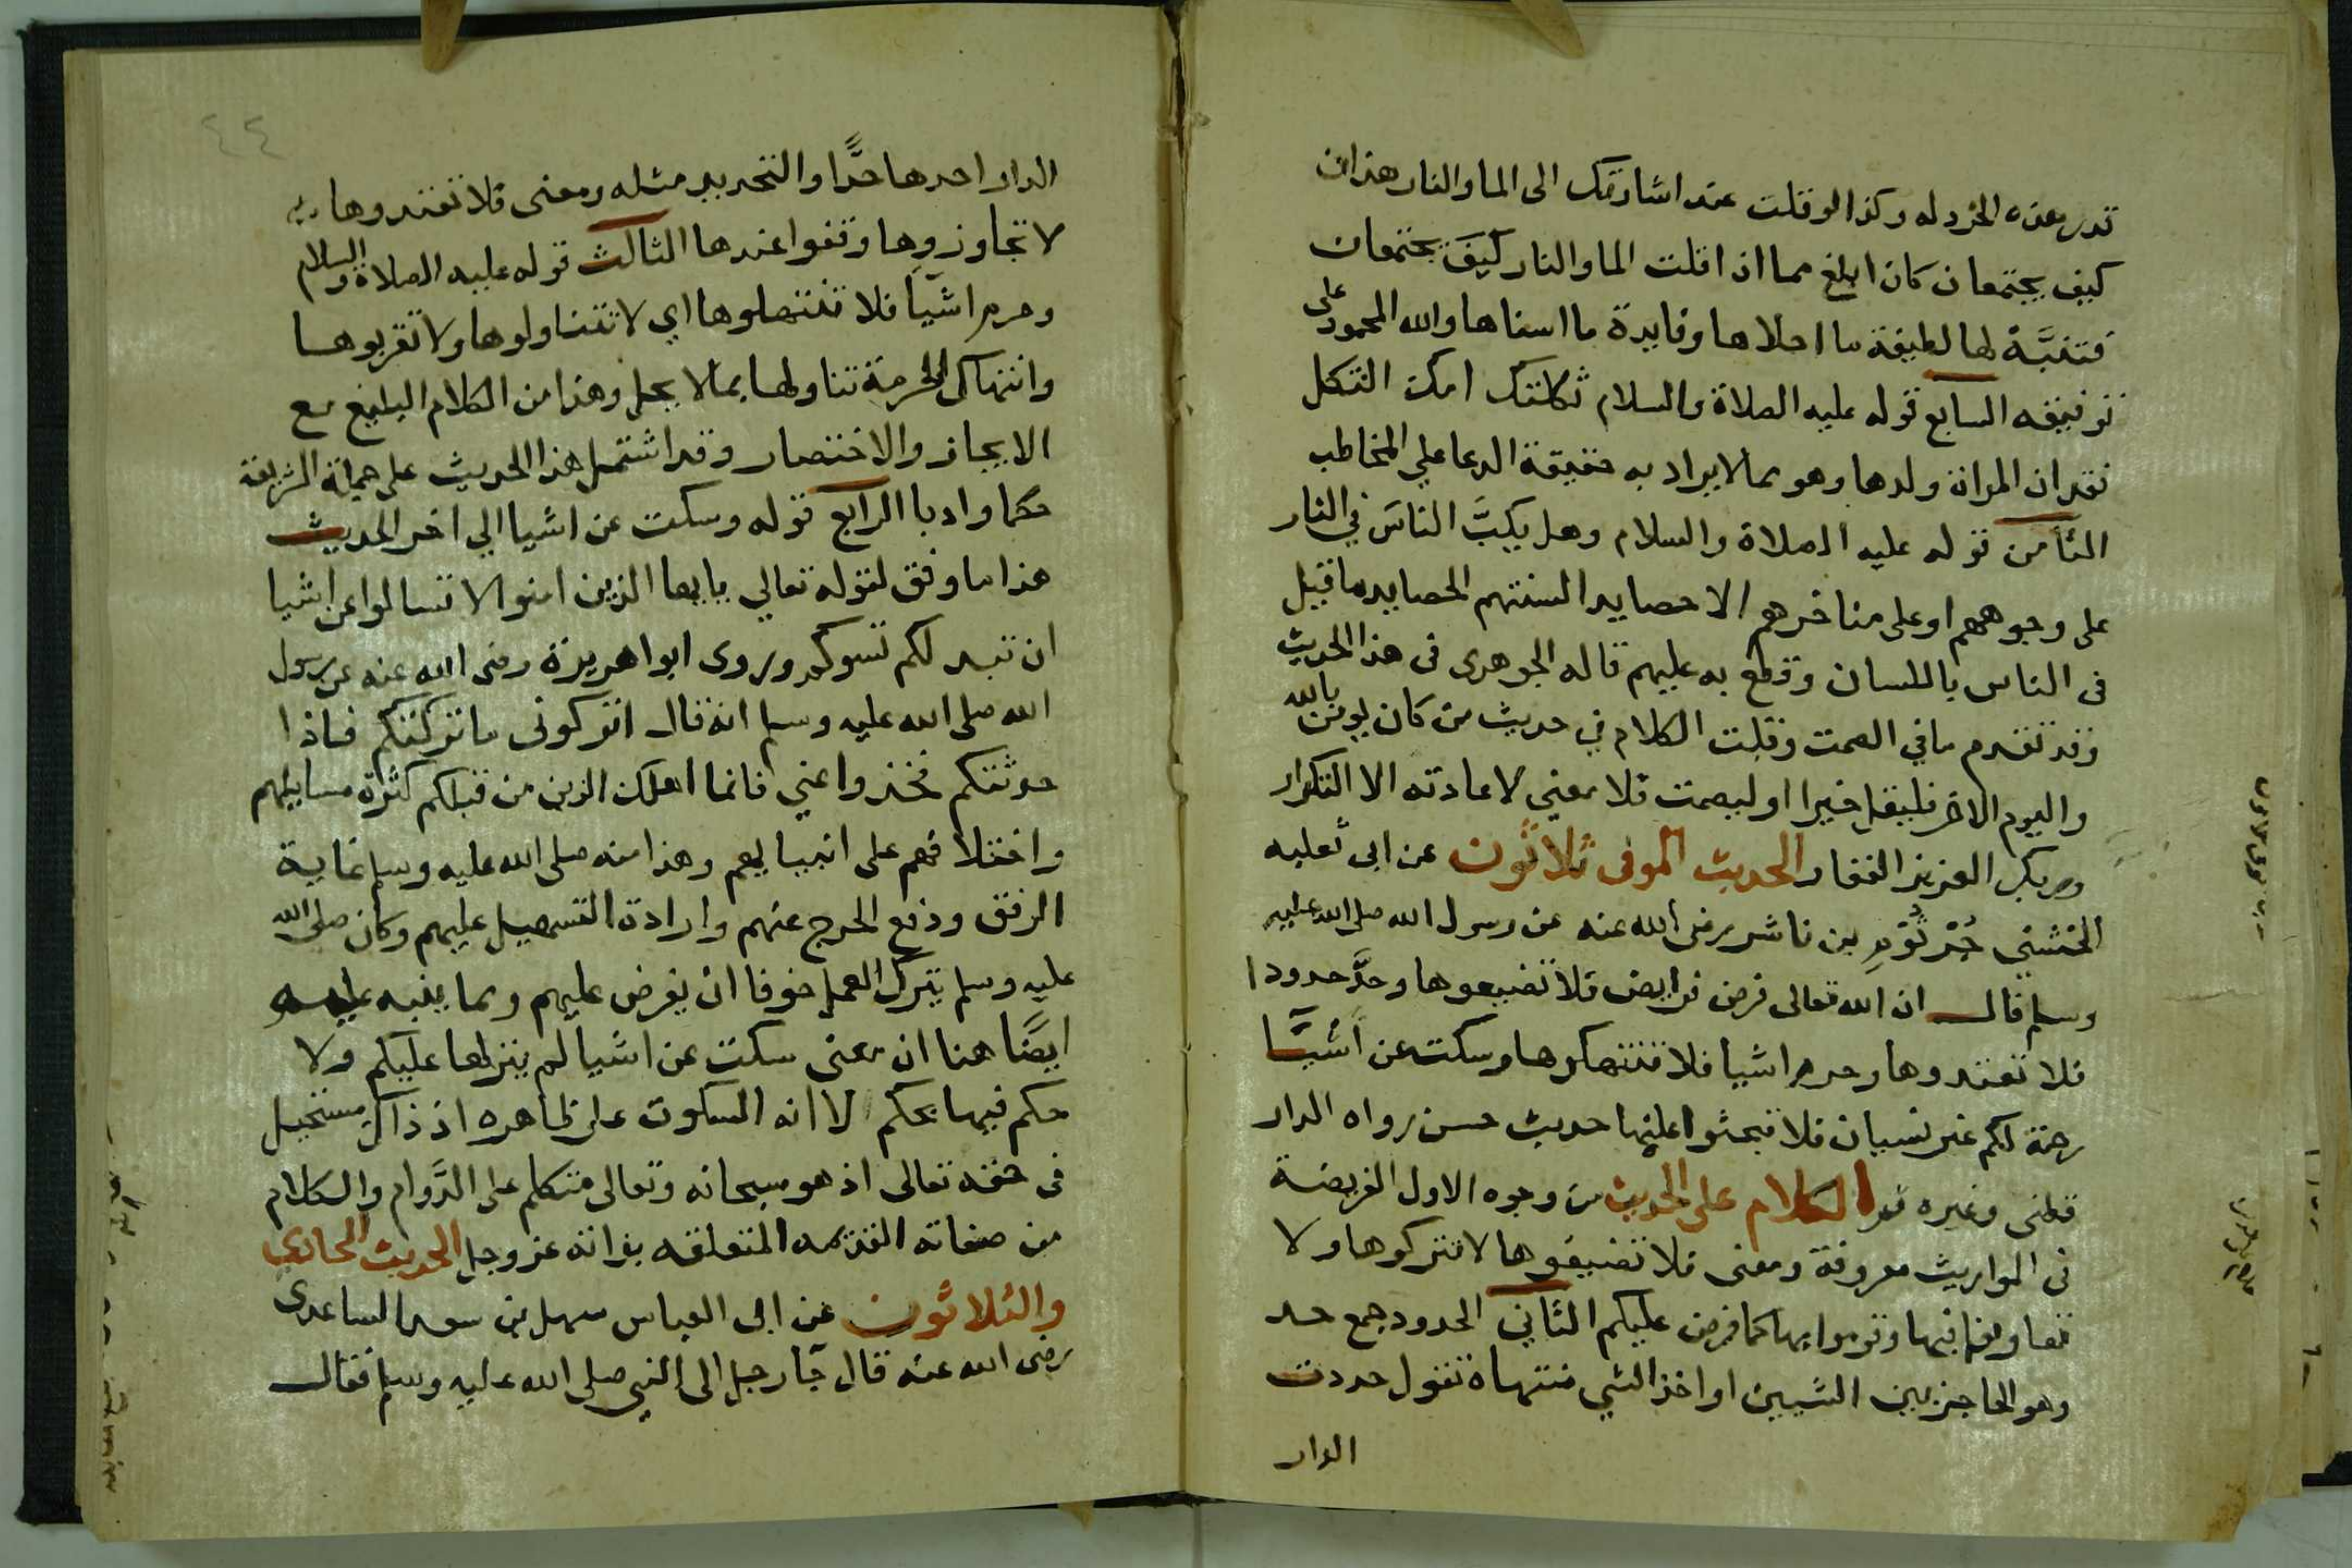 تدر هذه الخردله وكذا لو قلت عند اشارتك الى الما والنار هذان
كيف يجتمعان كان ابلغ مما اذا قلت الما والنار كيف يجتمعان
فتنبَّه لها لطيفة ما احلاها وفايدة ما اسناها والله المحمود على
توفيقه السابع قوله عليه الصلاة والسلام ثكلتك امك الثكل
فقدان المراة ولدها وهو مما لا يراد به حقيقة الدعا على المخاطب
الثامن قوله عليه الصلاة والسلام وهل يكبَّ الناسَ في النار
على وجوههم او على مناخرهم الا حصايد السنتهم الحصايد ما قيل
فى الناس باللسان وقطع به عليهم قاله الجوهرى فى هذا الحديث
وقد تقدم ما في الصمت وقلت الكلام في حديث من كان يومن بالله
واليوم الاخر فليقل خيرا او ليصمت فلا معني لاعادته الا التكرار
وربك العزيز الغفار الحديث الموفى ثلاثون عن ابى ثعلبه
الخشني جُرْثُوْمِ بن ناشر رضى الله عنه عن رسول الله صلى الله عليه
وسلم قال ان الله تعالى فرض فرايض فلا تضيعوها وحدَّ حدودا
فلا تعتدوها وحرم اشيا فلا تنتهكوها وسكت عن اشيَّا
رحمة لكم غير نسيان فلا تبحثوا عليها حديث حسن رواه الدار
قطنى وغيره الكلام على الحديث من وجوه الاول الفريضة
فى المواريث معروفة ومعنى فلا تضيعوها لا تتركوها ولا
تتهاونوا فيها وقوموا بها كما فرض عليكم الثاني الحدود جمع حد
وهو الحاجز بين الشيين او اخذ الشي منتهاه تقول حددت
الدار
٤٤
الدار احدها حدًّا والتحديد مثله ومعنى فلا تعتدوها
لا تجاوزوها وقفوا عندها الثالث قوله عليه الصلاة والسلام
وحرم اشيَا فلا تنتهكوها اي لا تتناولوها ولا تقربوها
وانتهاك الحرمة تناولها بما لا يحل وهذا من الكلام البليغ مع
الايجاز والاختصار وقد اشتمل هذا الحديث على الشريعة
حكما وادبا الرابع قوله وسكت عن اشيا الي اخر الحديث
هذا ما وفق لقوله تعالي يا يها الذين امنوا لا تسالوا عن اشيا
ان تبد لكم تسوكم وروى ابوا هريرة رضى الله عنه عن رسول
الله صلى الله عليه وسلم انه قال اتركونى ما تركتكم فاذا
حدثتكم فخذوا عني فانما اهلك الذين من قبلكم كثرة مسايلهم
واختلافهم على انبيايهم وهذا منه صلى الله عليه وسلم غاية
الرفق ودفع الحرج عنهم وارادة التسهيل عليهم وكان صلى الله
عليه وسلم يترك العمل خوفا ان يفرض عليهم ومما ينبه عليه
ايضًا هنا ان معنى سكت عن اشيا لم ينزلها عليكم ولا
حكم فيها بحكم لا انه السكوت على ظاهره اذ ذاك مستحيل
فى حقه تعالى اذ هو سبحانه وتعالى متكلم على الدَّوام والكلام
من صفاته القديمه المتعلقه بذاته عز وجل الحديث الحادي
والثلاثون عن ابى العباس سهل بن سعد الساعدى
رضى الله عنه قال جَا رجل الى النبي صلى الله عليه وسلم فقال